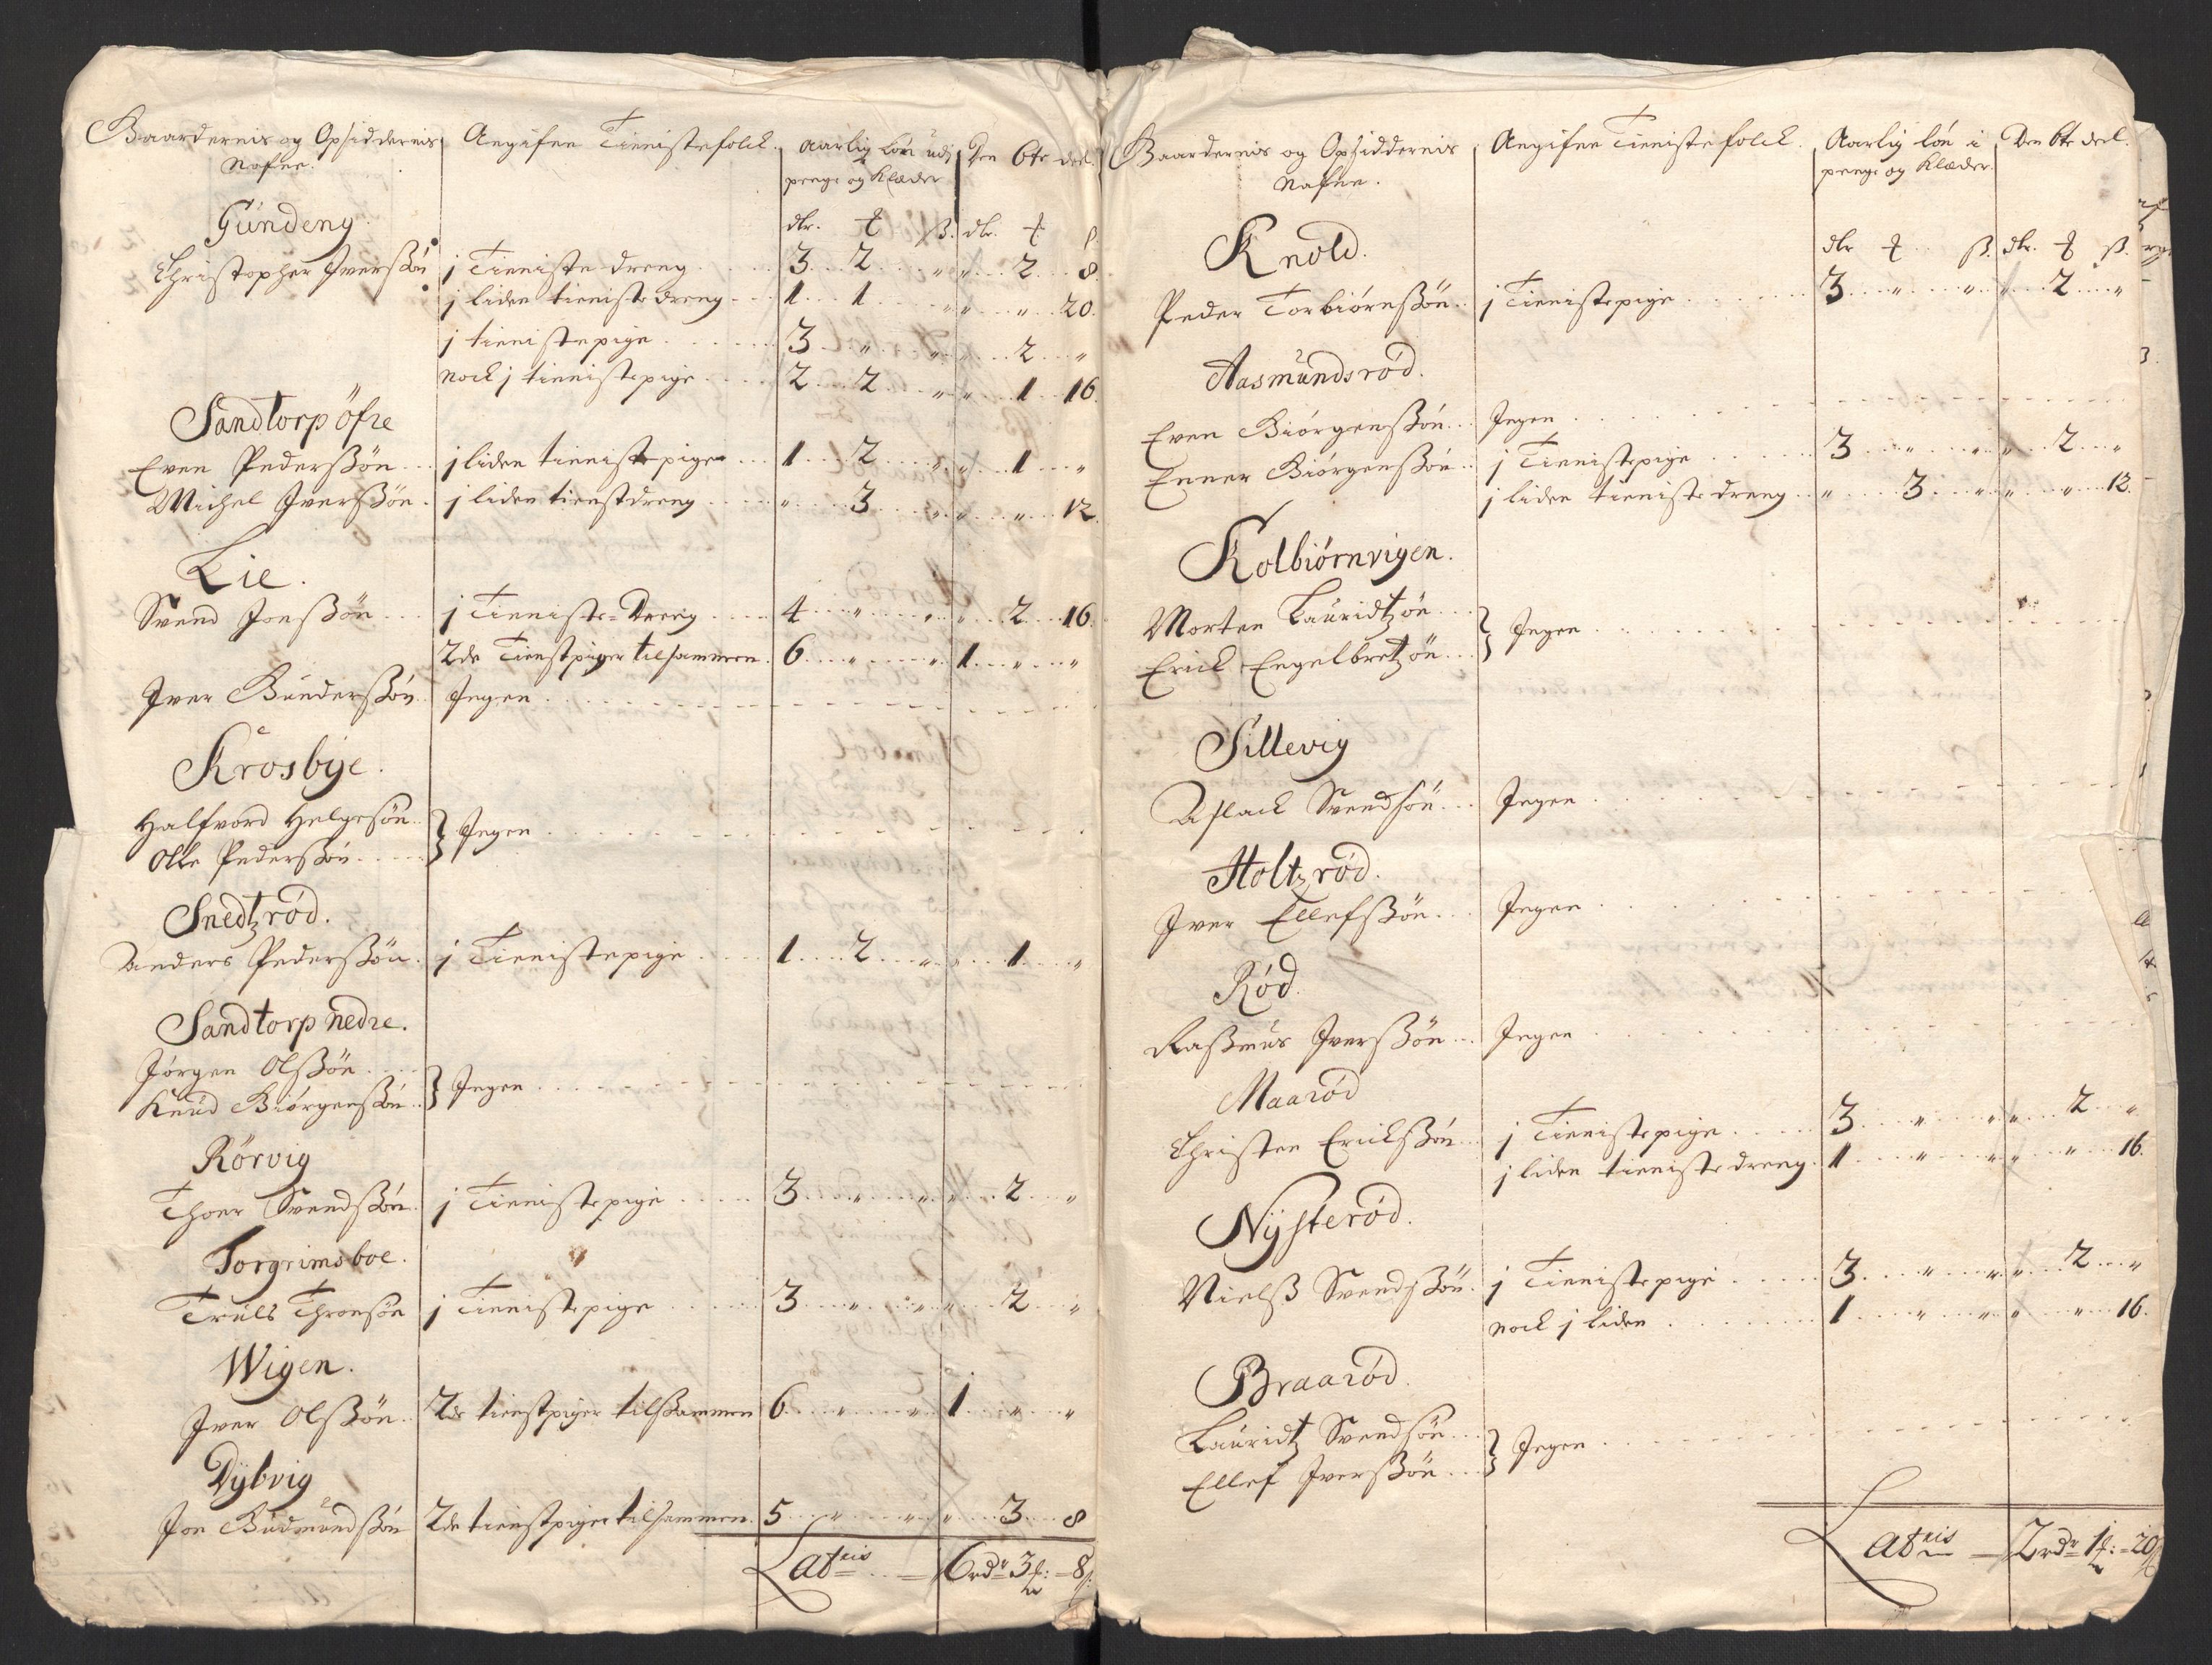 Gaardernis og Opsiddernis Nafne. | Angifne Tienistefolck. | Aarlig Løn udj penge og Klæder | Den 6te deel.
dlr. ß. dlr.
Gündeng.
Christopher Iverßøn | j Tieniste dreng | 3 2 " | " 2 8.
j liden tieniste dreng | 1 1 " | " " 20.
j tienistepige | 3 " " | " 2 "
nock j tienistepige | 2 2 " | " 1 16.
Sandtorp öfre
Even Pederßøn | j liden tienistepige | 1 2 " | " 1 "
Michel Iverßøn | j liden tienstdreng | " 3 " | " " 12.
Lie.
Svend Jonßøn | j Tieniste-Dreng | 4 " " | " 2 16.
2de Tienstpiger tilsammen | 6 " " | 1 " "
Iver Gunderßøn | Ingen
Krosbye.
Halfvord Helgesøn
Olle Pederßøn } Ingen
Snedtzrød.
Anders Pederßøn | j Tienistepige | 1 2 " | " 1 "
Sandtorp nedre.
Jørgen Olßøn
Knud Biørgenßøn } Ingen
Rörvig
Thoer Svendßøn | j Tienistepige | 3 " " | " 2 "
Torgrimsboe.
Truls Thronsøn | j Tienistepige | 3 " " | " 2 "
Wigen.
Iver Olßøn | 2de tienstpiger tilßammen | 6 " " | 1 " "
Dybvig
Jon Gudmundßøn | 2de tienstpiger tilsammen | 5 " " | " 3 8
Lateris 6 rdr 3 : 8
Gaardernis og Opsiddernis Nafne. | Angifne Tienistefolck. | Aarlig løn i penge og Klæder. | Den 6te deel.
dlr ß. dlr. ß.
Knold.
Peder Torbiørnßøn | j Tienistepige | 3 " " | " 2 "
Aasmundsrød.
Even Biørgenßøn | Ingen
Enner Biørgenßøn | j Tienistepige | 3 " " | " 2 "
j liden tieniste dreng | " 3 " | " " 12.
Kolbiørnvigen.
Morten Lauridtzøn
Erick Engelbretzøn } Ingen
Sillevig
Aslack Svendsøn | Ingen
Holtzrød.
Iver Ellefsßøn | Ingen
Rød.
Raßmus Iverßøn | Ingen
Maarød
Christen Erickßøn | j Tienistepige | 3 " " | " 2 "
j liden tieniste dreng | 1 " " | " " 16.
Nysterød.
Nielß Svendßøn | j Tienistepige | 3 " " | " 2 "
nock j liden | 1 " " | " " 16.
Braarød.
Lauridtz Svendsøn
Ellef Iverßøn } Ingen
Lateris 2 rdr 1 : 20